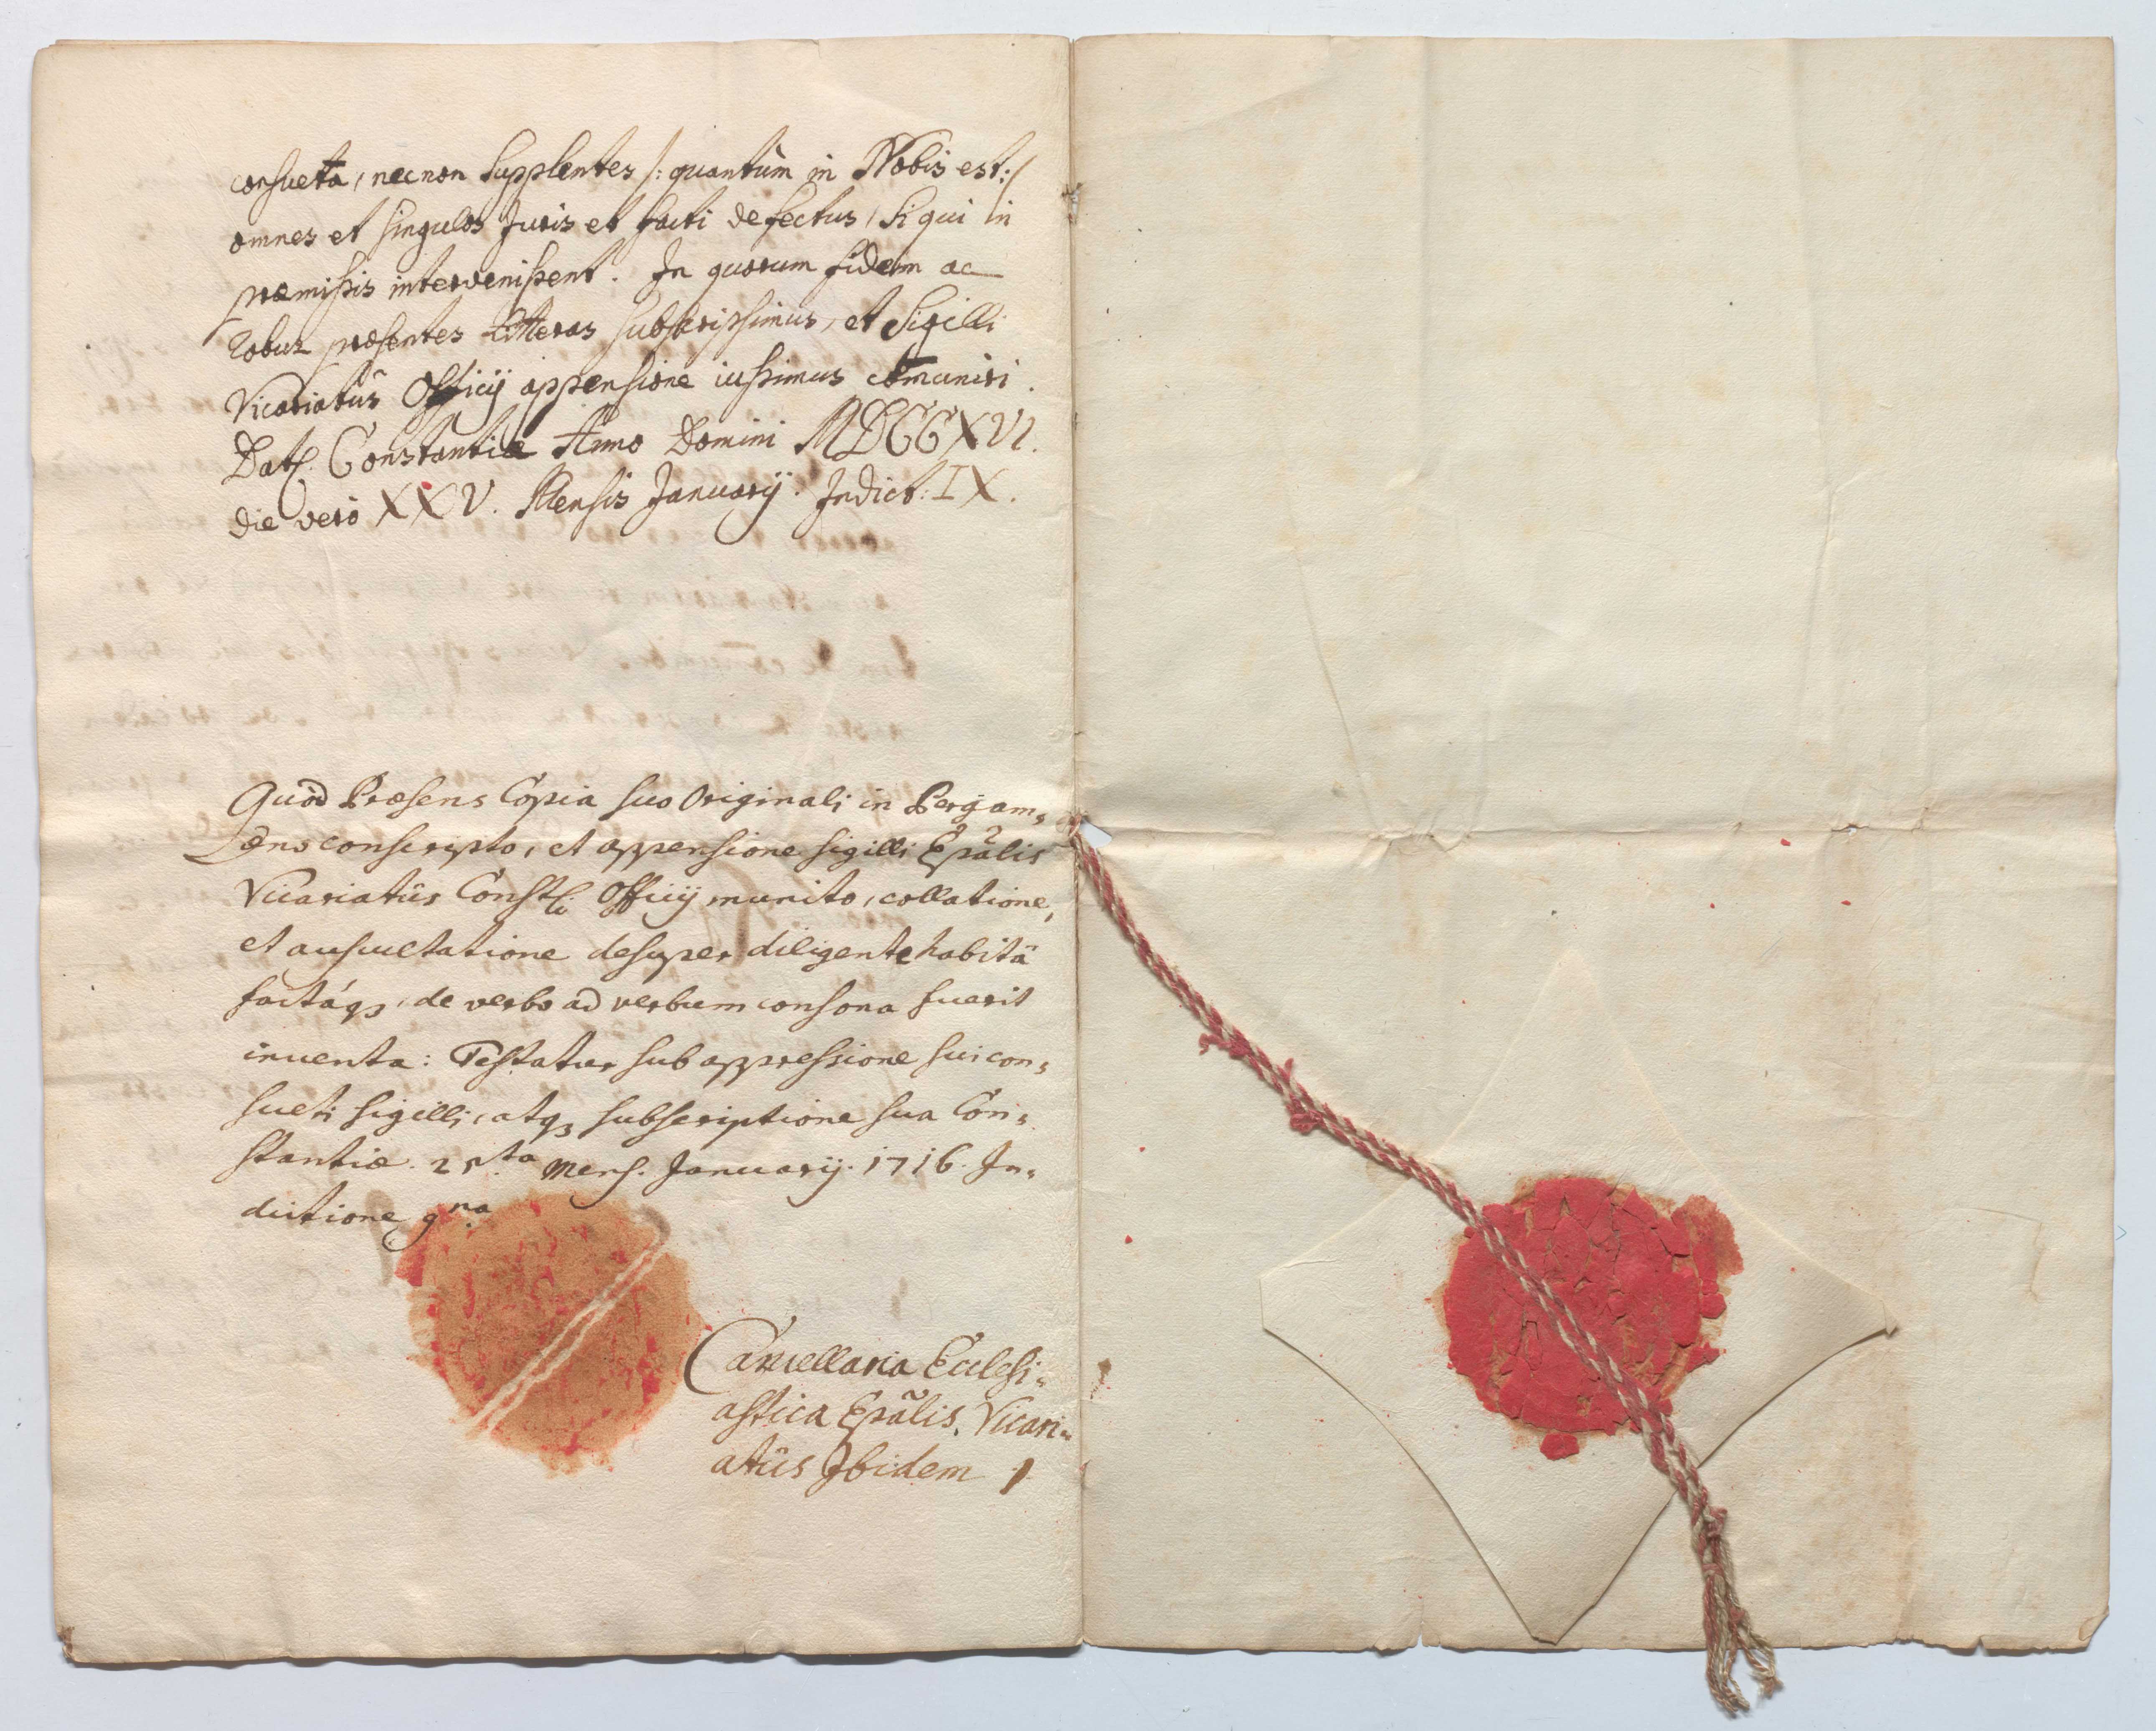 consueta, necnon Supplentes /: quantùm in Nobis est :/
omnes et singulos Juris et facti defectus, si qui in
præmissis intervenissent. In quorum fidem ac
robur præsentes Litteras subscripsimus, et Sigilli
Vicariatûs Officij appensione iussimus com̄uniri.
Dat. Constantiæ Anno Domini MDCCXVI.
die verò XXV. Mensis Januarij. Indict: IX.
Quòd Præsens Copia suo Originali in Pergam=
æno conscripto, et appensione sigilli Ep̃alis
Vicariatûs Constli Officij munito, collatione,
et auscultatione desuper diligente habitâ
factáq3, de verbo ad verbum consona fuerit
inventa: Testatur sub appressione sui con=
sueti sigilli, atq3 subscriptione sua Con=
stantiæ. 25ta Mens. Januarij. 1716. In=
dictione 9na
Cancellaria Ecclesi=
astica Ep̃alis. Vicari=
atûs Ibidem